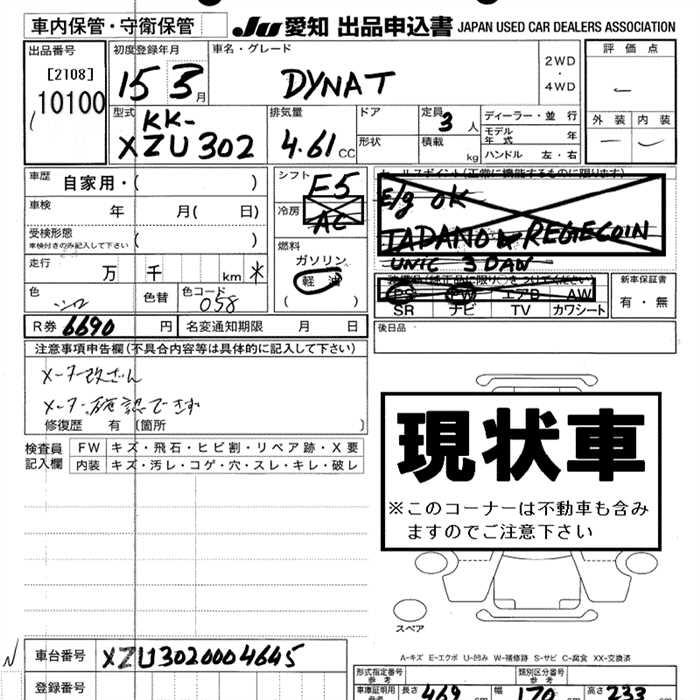 車内保管・守衛保管 JU 愛知 出品申込書 JAPAN USED CAR DEALERS ASSOCIATION
出品番号 初度登録年月 車名・グレード 評価点
[2108] 15 3 月 DYNA T 2WD・4WD
10100
型式 排気量 ドア 定員 3 人 ディーラー・並行 外装 内装
KK- 形状 積載 kg モデル年式 年
XZU302 4.61 CC ハンドル 左・右
車歴 自家用・( ) シフト F5 セールスポイント(正常に機能するものに限ります)
車検 年 月( 日) 冷房 AC E/g OK
受検形態 ( )
車検付きのみ記入して下さい
燃料 TADANO REGECOIN
ガソリン UNIC 3 DAN
走行 万 千 km * 軽油 PS PW エアB AW 新車保証書
色 シロ 色替 色コード 058 ( ) SR ナビ TV カワシート 有・無
R券 6690 円 名変通知期限 月 日 後日品
注意事項申告欄(不具合内容等は具体的に記入して下さい)
メーター改ざん
メーター確認できず
修復歴 有 (箇所 )
検査員記入欄 FW キズ・飛石・ヒビ割・リペア跡・X要
内装 キズ・汚レ・コゲ・穴・スレ・キレ・破レ
現状車
※このコーナーは不動車も含み
ますのでご注意下さい
スペア
A-キズ E-エクボ U-凹み W-補修跡 S-サビ C-腐食 XX-交換済
N 車台番号 XZU3020004645 形式指定番号 参考 類別区分番号 参考
登録番号 車庫証明用 長さ 469 cm 幅 170 cm 高さ 233 cm